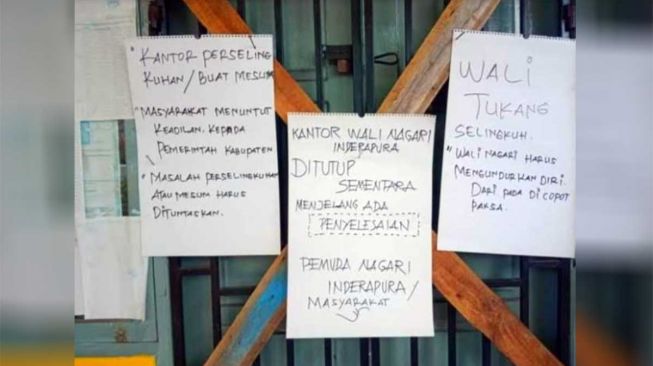 "KANTOR PERSELING
KUHAN/BUAT MESUM
"MASYARAKAT MENUNTUT
KEADILAN. KEPADA
PEMERINTAH KABUPATEN
"MASALAH PERSELINGKUHAN
ATAU MESUM HARUS
DITUNTASKAN.
KANTOR WALI NAGARI
INDERAPURA
DITUTUP
SEMENTARA
MENJELANG ADA
PENYELESAIAN
PEMUDA NAGARI
INDERAPURA/
MASYARAKAT
WALI
TUKANG
SELINGKUH.
"WALI NAGARI HARUS
MENGUNDURKAN DIRI.
DARI PADA DI COPOT
PAKSA.